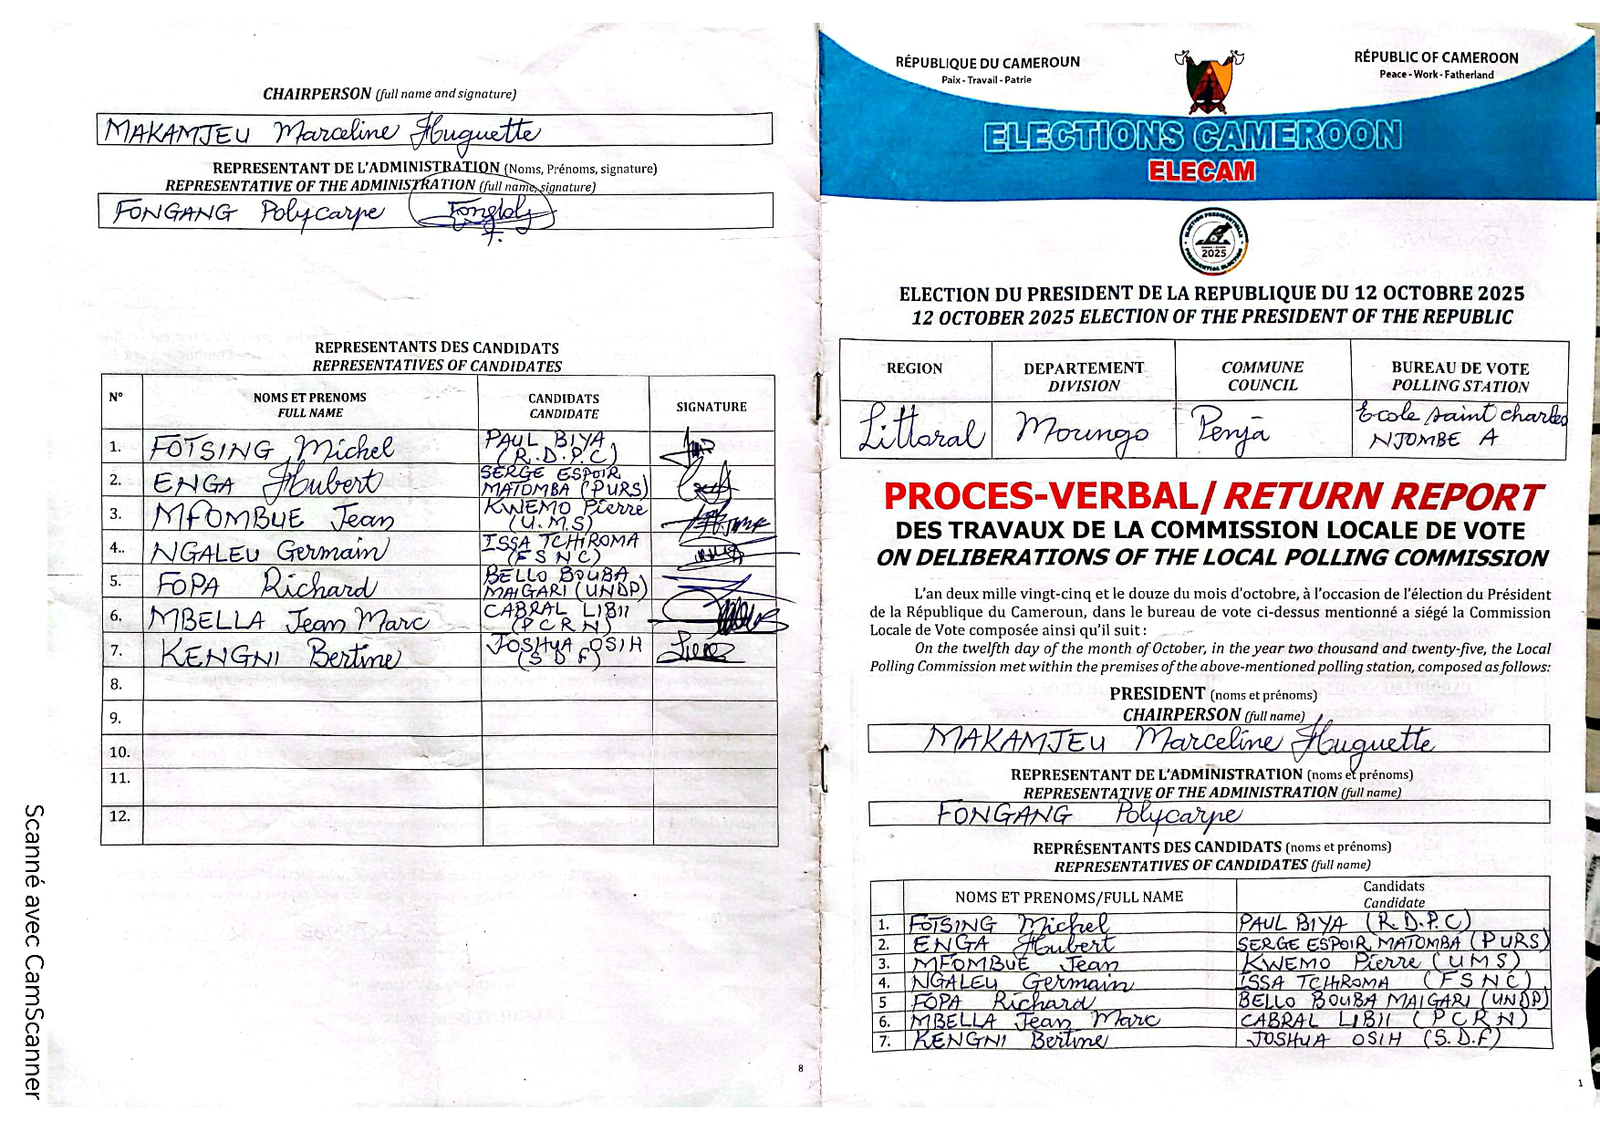 CHAIRPERSON (full name and signature)
MAKAMJEU Marceline Huguette
REPRESENTANT DE L'ADMINISTRATION (Noms, Prénoms, signature)
REPRESENTATIVE OF THE ADMINISTRATION (full name, signature)
FONGANG Polycarpe
REPRESENTANTS DES CANDIDATS
REPRESENTATIVES OF CANDIDATES
N° NOMS ET PRENOMS FULL NAME CANDIDATS CANDIDATE SIGNATURE
1. FOTSING Michel PAUL BIYA (R.D.P.C)
2. ENGA Hubert SERGE ESPOIR MATOMBA (PURS)
3. MFOMBUE Jean KWEMO Pierre (U.M.S)
4.. NGALEU Germain ISSA TCHIROMA (FSNC)
5. FOPA Richard BELLO BOUBA MAIGARI (UNDP)
6. MBELLA Jean Marc CABRAL LIBII (PCRN)
7. KENGNI Bertine JOSHUA OSIH (SDF)
8.
9.
10.
11.
12.
8
Scanné avec CamScanner
RÉPUBLIQUE DU CAMEROUN
Paix - Travail - Patrie
RÉPUBLIC OF CAMEROON
Peace - Work - Fatherland
ELECTIONS CAMEROON
ELECAM
ELECTION PRESIDENTIELLE
2025
PRESIDENTIAL ELECTION
ELECTION DU PRESIDENT DE LA REPUBLIQUE DU 12 OCTOBRE 2025
12 OCTOBER 2025 ELECTION OF THE PRESIDENT OF THE REPUBLIC
REGION DEPARTEMENT DIVISION COMMUNE COUNCIL BUREAU DE VOTE POLLING STATION
Littoral Moungo Penja Ecole saint charles NJOMBE A
PROCES-VERBAL/ RETURN REPORT
DES TRAVAUX DE LA COMMISSION LOCALE DE VOTE
ON DELIBERATIONS OF THE LOCAL POLLING COMMISSION
L'an deux mille vingt-cinq et le douze du mois d'octobre, à l'occasion de l'élection du Président
de la République du Cameroun, dans le bureau de vote ci-dessus mentionné a siégé la Commission
Locale de Vote composée ainsi qu'il suit :
On the twelfth day of the month of October, in the year two thousand and twenty-five, the Local
Polling Commission met within the premises of the above-mentioned polling station, composed as follows:
PRESIDENT (noms et prénoms)
CHAIRPERSON (full name)
MAKAMJEU Marceline Huguette
REPRESENTANT DE L'ADMINISTRATION (noms et prénoms)
REPRESENTATIVE OF THE ADMINISTRATION (full name)
FONGANG Polycarpe
REPRÉSENTANTS DES CANDIDATS (noms et prénoms)
REPRESENTATIVES OF CANDIDATES (full name)
NOMS ET PRENOMS/FULL NAME Candidats Candidate
1. FOTSING Michel PAUL BIYA (R.D.P.C)
2. ENGA Hubert SERGE ESPOIR MATOMBA (PURS)
3. MFOMBUE Jean KWEMO Pierre (UMS)
4. NGALEU Germain ISSA TCHIROMA (FSNC)
5 FOPA Richard BELLO BOUBA MAIGARI (UNDP)
6. MBELLA Jean Marc CABRAL LIBII (PCRN)
7. KENGNI Bertine JOSHUA OSIH (S.D.F)
1